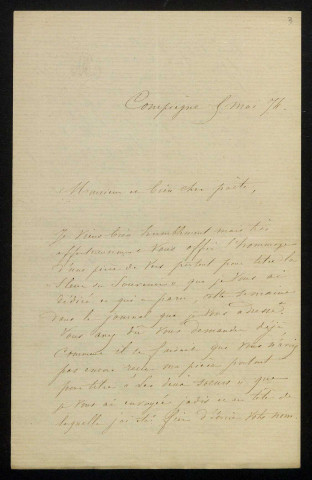 Compiègne 5 mai 76.
Monsieur et bien cher poète,
Je viens très humblement mais très
affectueusement vous offrir l'hommage
d'une pièce de vers portant pour titre la
fleur du Souvenir que je vous ai
dédiée et qui a paru cette semaine
dans le journal que je vous adresse.
Vous avez dû vous demander déjà
comment il se faisait que vous n'aviez
pas encore reçu ma pièce portant
pour titre : Les deux sœurs : que
je vous ai envoyée jadis et en tête de
laquelle j'ai été fier d'écrire votre nom